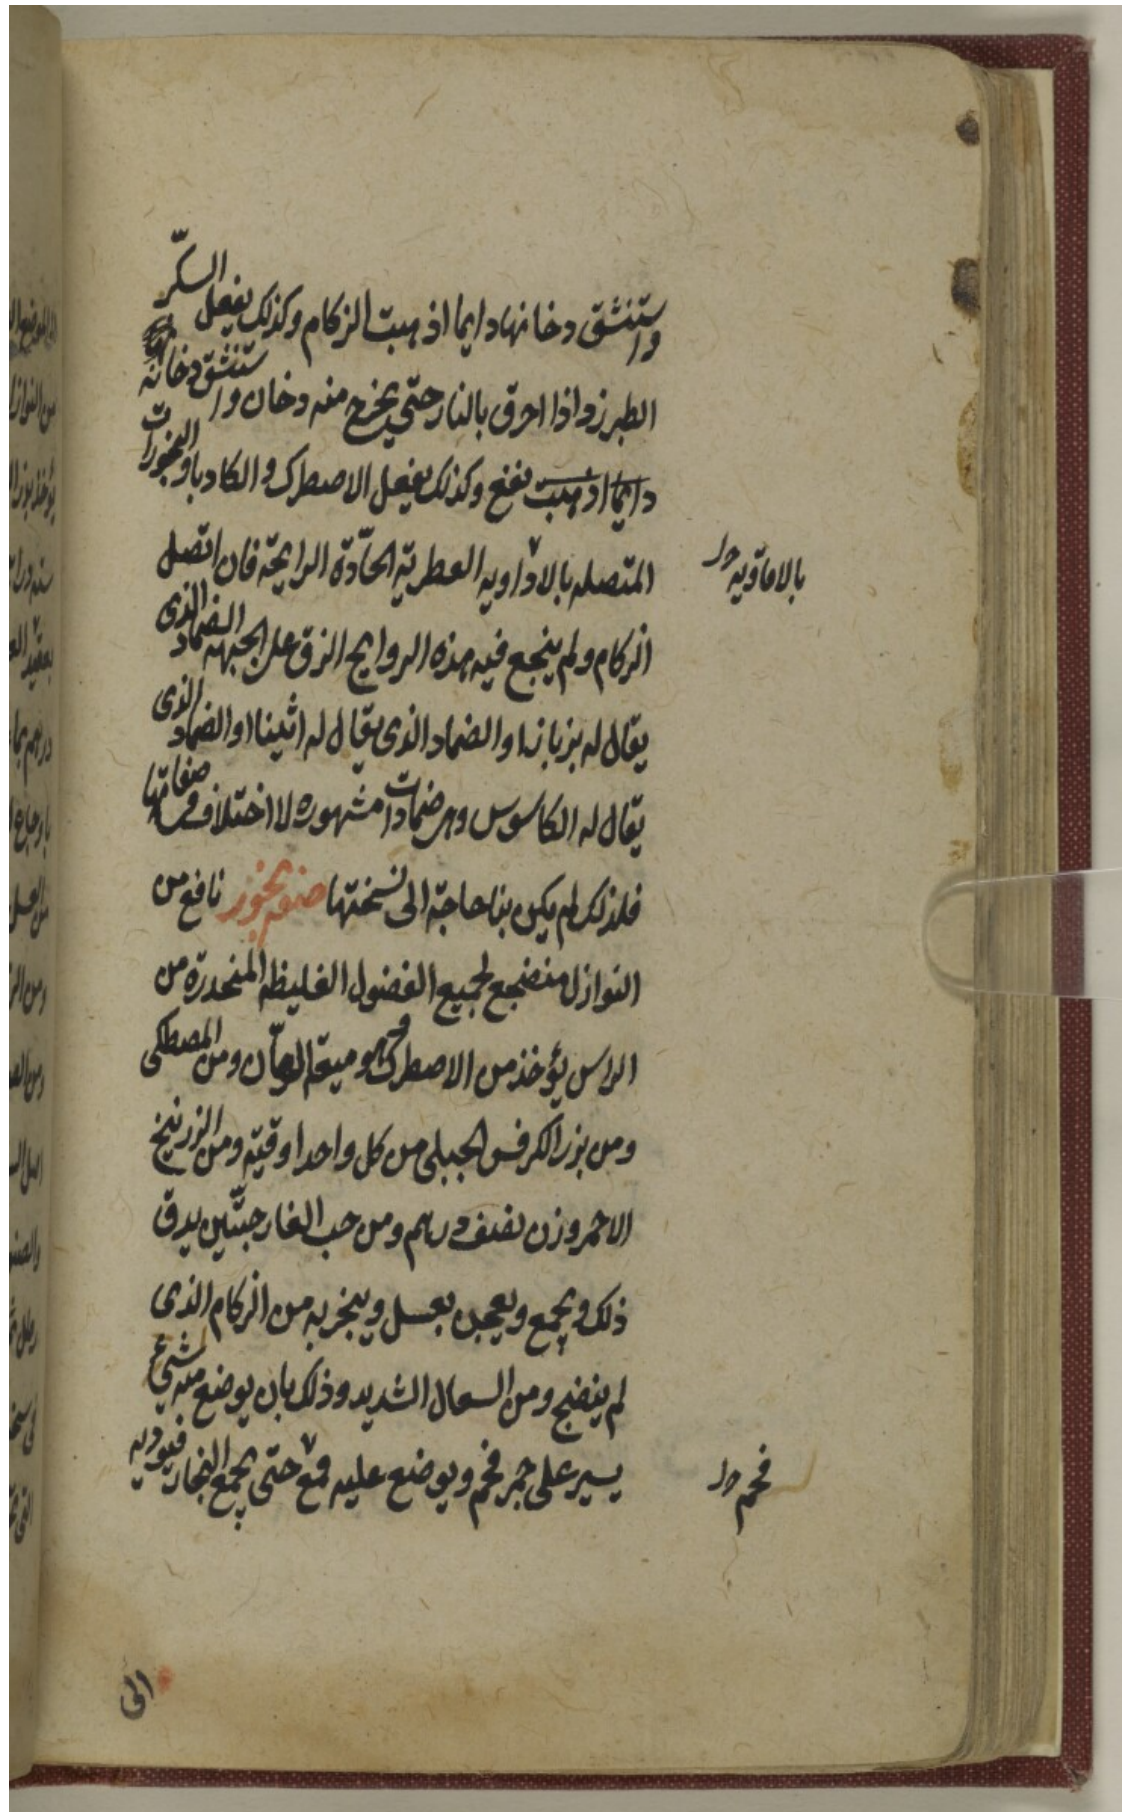 واستنشق دخانها دايما اذهبت الزكام وكذلك يفعل السكّر
الطبرزد اذا احرق بالنار حتى يخرج منه دخان واستنشق دخانه
دايما اذهبت نفع وكذلك يفعل الاصطرك والكادبا والبخورات
المتصله بالادٰاويه العطريّة الحادّة الرايحة فان اتصل
بالافاويه
الزكام ولم ينجع فيه هذه الروايح الزق على الجبهه الضماد الذى
يقال له بزبازا والضماد الذى يقال له اثينا او الضماد الذى
يقال له الكاسوس وهى ضمادات مشهوره لا اختلاف فى صفاتها
فلذلك لم يكن بنا حاجة الى نسختها صنعه بخور نافع من
النوازل منضج لجميع الفضول الغليظه المنحدرة من
الراس يؤخذ من الاصطرك وهو ميعة الرمّان ومن المصطكى
ومن بزر الكرفس الجبلى من كل واحد اوقيّة ومن الزرنيخ
الاحمر وزن نصف درهم ومن حب الغار حبتّين يدق
ذلك ويجمع ويعجن بعسل ويبخر به من الزكام الذى
لم ينضج ومن السعال الشديد وذلك بان يوضع منه شىء
يسير على جمر فحم ويوضع عليه قمع حتى يجمع البخار فيوديه
فحم
الى